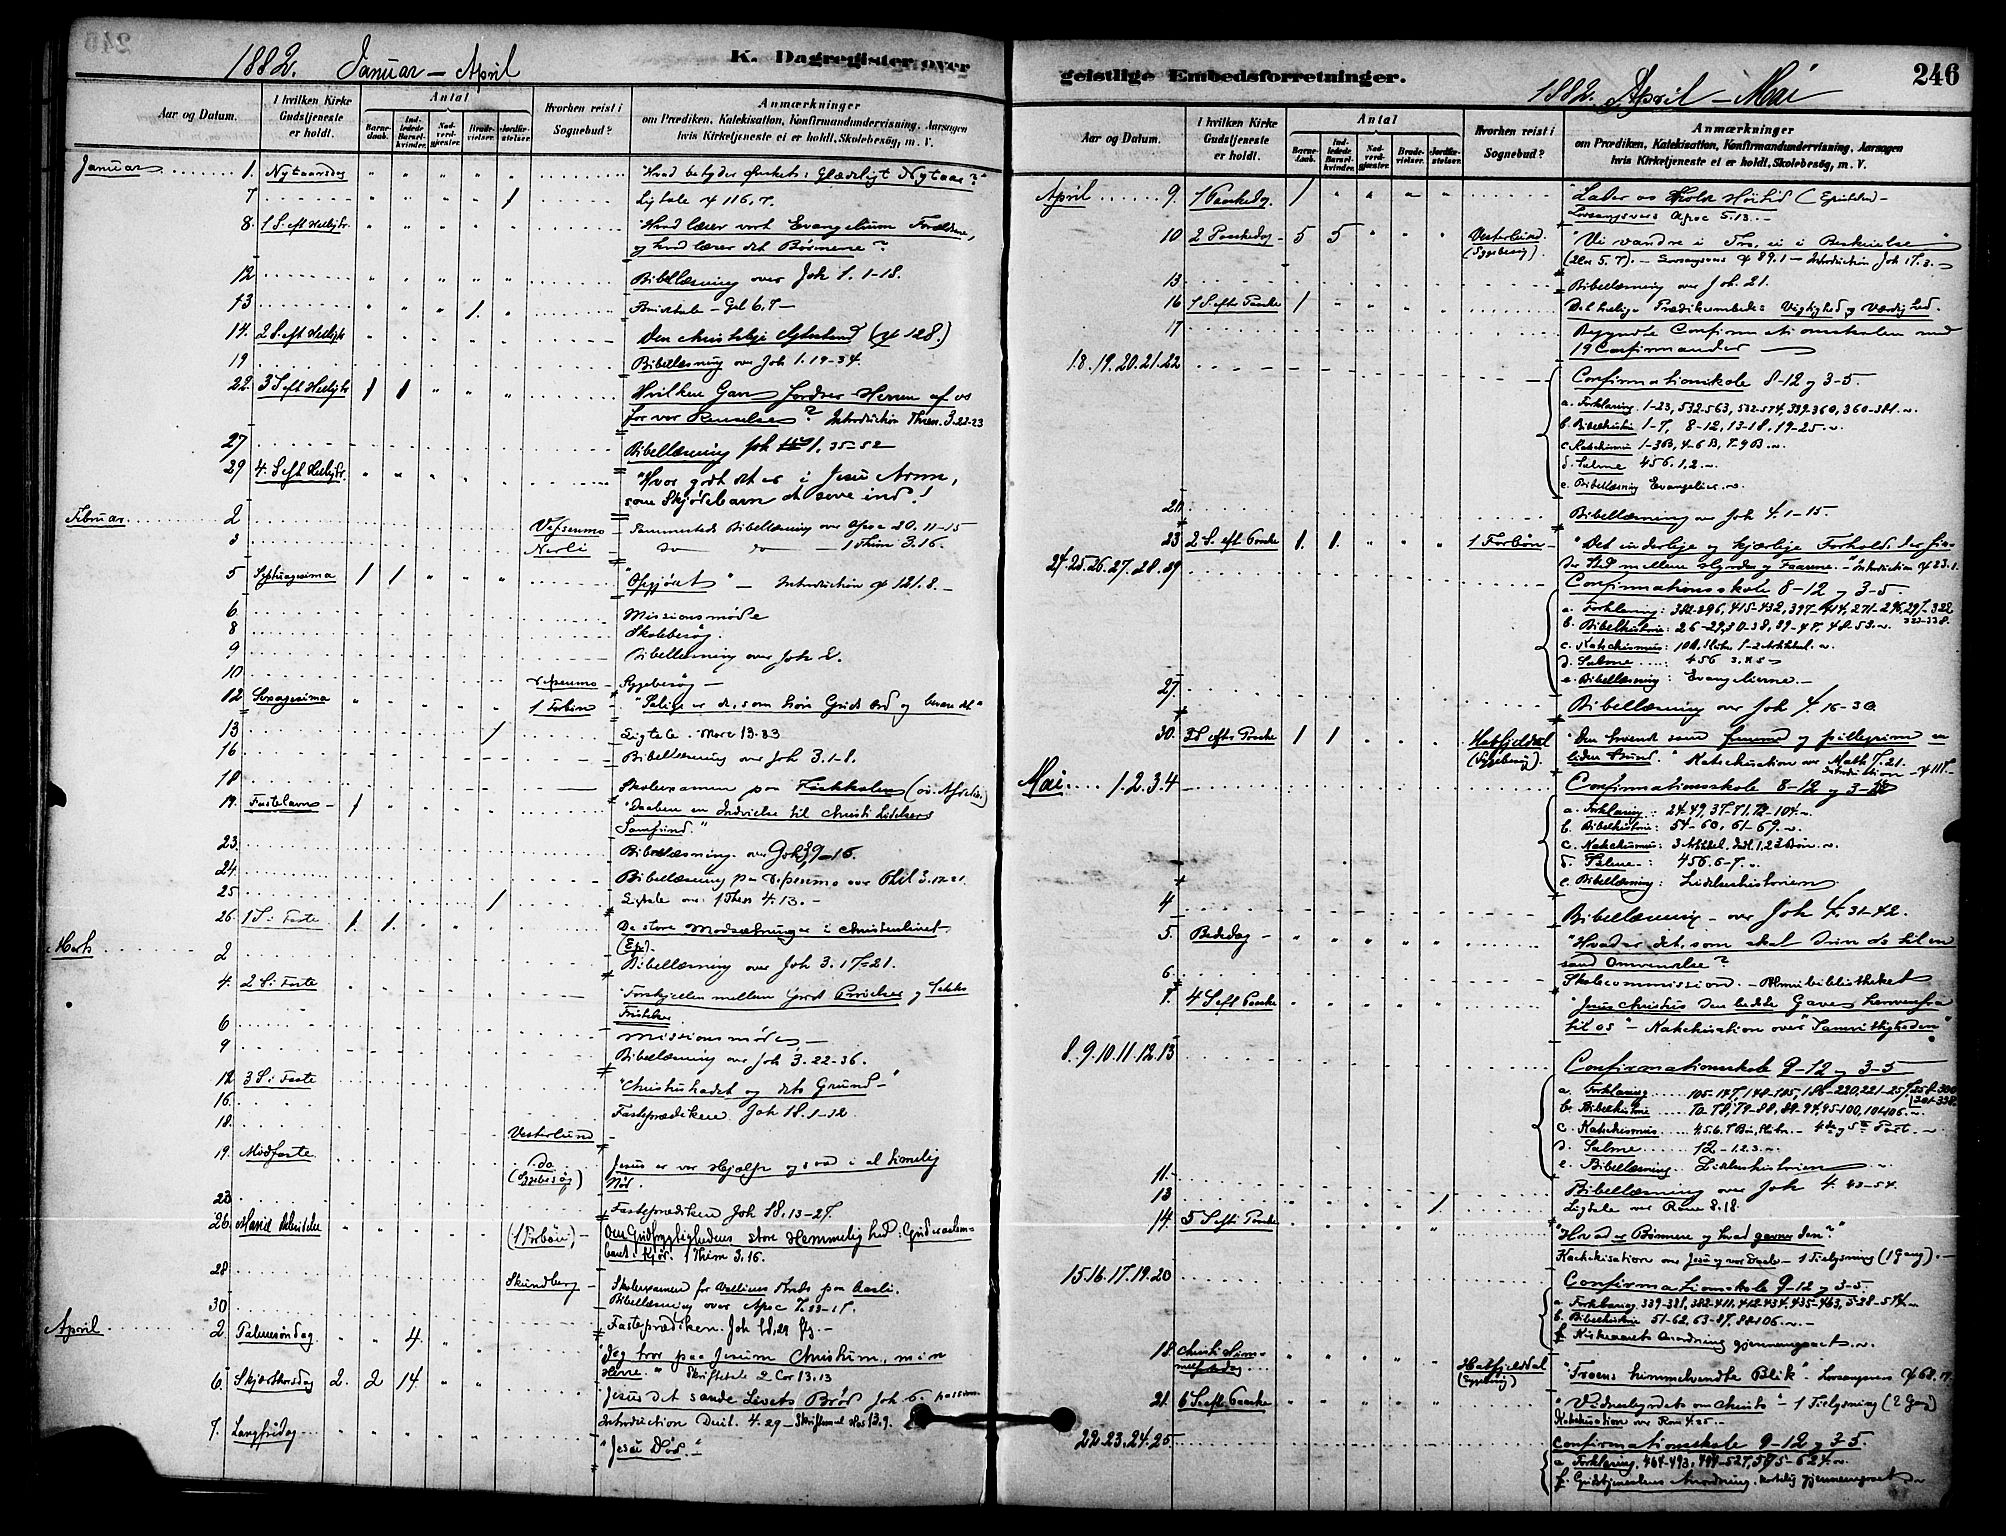 1882. Januar – April
K. Dagregister over
Aar og Datum.
I hvilken Kirke Gudstjeneste er holdt.
Antal
Barne-daab.
Ind-ledede Barsel-kvinder.
Nad-verd-gjæster.
Brude-vielser.
Jordfæ-stelser.
Hvorhen reist i Sognebud?
Anmærkninger
om Prædiken, Katekisation, Konfirmandundervisning, Aarsagen
hvis Kirketjeneste ei er holdt, Skolebesög, m. V.
Januar 1. Nytaarsdag "Hvad betyder Ønsket: Glædeligt Nytaar?"
7 1 Ligtale
8. 1 S. eft Helligtr. Hvad lærer vort Evangelium Forældrene,
og hvad lærer det Børnene?
12 Bibellæsning over Joh 1. 1-18.
13 1. Brudetale – Gal 6,7 –
14. 2 S. eft Helligtr Den christelige
19 Bibellæsning over Joh 1. 19-34.
22. 3 S eft Helligtr 1 1 Hvilken Gave fordrer Herren af os
for vor Renselse? Introduction Thren. 3.22-23
27 Bibellæsning Joh 1, 35-52
29 4. S eft Helligtr. "Hvor godt det er i Jesu Arme,
som Skjødebarn at sove ind!
Februar 2 Vefsenmo Bibellæsning over Apoc 20. 11-15
3 Nerli do do 1 Thim 3.16.
5 Septuagesima 1 1 "Opgjøret" – Introduction 121. 8. –
6. Missionsmøde
8 Skolebesøg.
9 Bibellæsning over Joh 2.
10 Vefsenmo – Sygebesøg –
12 Sexagesima 1 Forbøn "Salige er de, som høre Guds Ord og bevare det"
13 1 Ligtale. Marc 13.33
16 Bibellæsning over Joh 3.1-8.
18 Skoleexamen paa
19. Fastelavns 1 "Daaben en Indvielse til Christi Lidelsers
Samfund."
23. Bibellæsning over Joh 3 9-16.
24. Bibellæsning paa Vefsenmo over Phil 3.17-21.
25 1 Ligtale over 1 Thess 4.13. –
26. 1 S i Faste 1 1. De store Modsætninger i Christenlivet
(Ep).
Marts 2 Bibellæsning over Joh 3. 17-21.
4. 2 S i Faste "Forskjellen mellem Guds Prøvelser og
Fristelser
6 Missionsmøde –
9 Bibellæsning over Joh 3. 22-36.
12 3 S i Faste "Christushadet og dets Grund"
16. Fasteprædiken Joh 18.1-12
18. Vesterlund
19. Midfaste do (Sygebesøg) Jesus er vor Hjælper ogsaa i al timelig
Nød.
23 Fasteprædiken Joh 18. 13-27.
26. Mariæ (1 Forbøn) – Om Gudfrygtighedens store Hemmelighed: Gud
i Kjød. 1 Thim 3.16.
28 Skundberg – Skoleexamen for Kreds paa
30 Bibellæsning over Apoc 7. 13-17.
Fasteprædiken. Joh
April 2. Palmesøndag 4. "Jeg tror paa Jesum Christum, min
Herre." Skriftetale 2 Cor 13.13
6. Skjærthorsdag 2. 2 14. "Jesus det sande Livets Brød Joh 6
Introduction Deut. 4. 29 – Skriftemaal Hos 13.9.
7. Langfredag "Jesu Død"
geistlige Embedsforretninger.
1882. April – Mai
246
Aar og Datum.
I hvilken Kirke Gudstjeneste er holdt.
Antal
Barne-daab.
Ind-ledede Barsel-kvinder.
Nad-verd-gjæster.
Brude-vielser.
Jordfæ-stelser.
Hvorhen reist i Sognebud?
Anmærkninger
om Prædiken, Katekisation, Konfirmandundervisning, Aarsagen
hvis Kirketjeneste ei er holdt, Skolebesög, m. V.
April 9. 1 Paaskedg. 1 "Lader os holde Høitid (Epistelen) –
Apoc 5.13. –
10 2 Paaskedag 5 5 Vesterlund (Sygebesøg). "Vi vandre i Tro, ei i Beskuelse"
– 89.1 – Introduction Joh 17.3.
13 Bibellæsning over Joh. 21.
16 1 S. efter Paaske 1 Det hellige Prædikeembedes Vigtighed og Værdighed.
17 Begyndte Confirmationsskolen med
19 Confirmander
18. 19. 20. 21. 22 Confirmationskole 8-12 og 3-5.
a. Forklaring 1-23, 532-563, 532-574, 339-360, 360-381.
b. Bibelhistorie 1-7, 8-12, 13-18, 19-25.
c. Katechismus 1-3B, 4-6 B, 7-9 B.
d. Salme 456. 1,2.
e. Bibellæsning Evangelier.
20 Bibellæsning over Joh 4. 1-15.
23 2 S. eft Paaske 1. 1. 1 Forbøn "Det inderlige og kjærlige Forhold, der fin-
der Sted mellem Hyrden og Faarene. – Introduction 23.1.
24. 25. 26. 27. 28. 29 Confirmationsskole 8-12 og 3-5.
a. Forklaring: 382-396, 415-432, 397-414, 271-296, 297-322
323-338.
b. Bibelhistorie: 26-29, 30-38, 39-47, 48-53.
c. Katechismus: 1-2 Artikkel.
d. Salme 456 3.
e. Bibellæsning: Evangelierne. –
27. Bibellæsning over Joh 4. 16-30
30. 3 S efter Paaske 1 1 Hatfjelddal (Sygebesøg) "Den som fremmed og pillegrim en
liden Stund." Katechisation over Math 7.21.
Introduction – 117
Mai 1. 2. 3. 4 Confirmationsskole 8-12 og 3-5
a. Forklaring: 24-49, 37-71, 72-104.
b. Bibelhistorie: 54-60, 61-69.
c. Katechismus: 3 Artikkel. 1, 2, 3 Bøn.
d. Salme: 456. 6-7.
e. Bibellæsning: Lidelseshistorien.
4 Bibellæsning – over Joh 4. 31-42.
5. Bededag – "Hvad er det, som skal drive os til en
sand Omvendelse?
6. Skolecommission. – Almuebibliotheket
7. 4 S eft Paaske "Jesus Christus den bedste Gave herovenfra
til os" – Katechisation over "Samvittigheden"
8. 9. 10. 11. 12. 13 Confirmationsskole 9-12 og 3-5
a. Forklaring 105-147, 148-185, 186-220, 221-257, 258-300
301-338.
b. Bibelhistorie 70-78, 79-88, 89-94, 95-100, 101-106.
c. Katechismus 4.5.6.7 Bøn, – 4de og 5te Part.
d. Salme 12 – 1.2.3.
e. Bibellæsning Lidelseshistorien
11. Bibellæsning over Joh 4. 43-54.
13 1. Ligtale over Rom 8.18.
14. 5 S eft Paaske "Hvad er Bønnen og hvad gavner den?"
Katechisation over Jesu og vor Daab – 1 Tillysning (1 Gang). –
15. 16. 17. 19. 20 Confirmationsskole 9-12 og 3-5.
a Forklaring, 339-381, 382-411, 412-434, 435-463,
b. Bibelhistorie 51-62, 63-87, 88-106.
f. Kirkeaarets Anordning gjennemgaaet.
18. Christi Himmelfartsdag Hatfjelddal (Sygebesøg) "Troens himmelvendte Blik" – 68. 19
21. 6 S eft Paaske "Vidnesbyrdet om Christo" – 1 Tillysning (2 Gang)
Katechisation over Rom 4.25. –
22. 23. 24. 25 Confirmationsskole 9-12 og 3-5.
a Forklaring, 464-493, 494-527, 575-624.
f. Gudstjenestens Anordning, kortelig gjennemgaaet